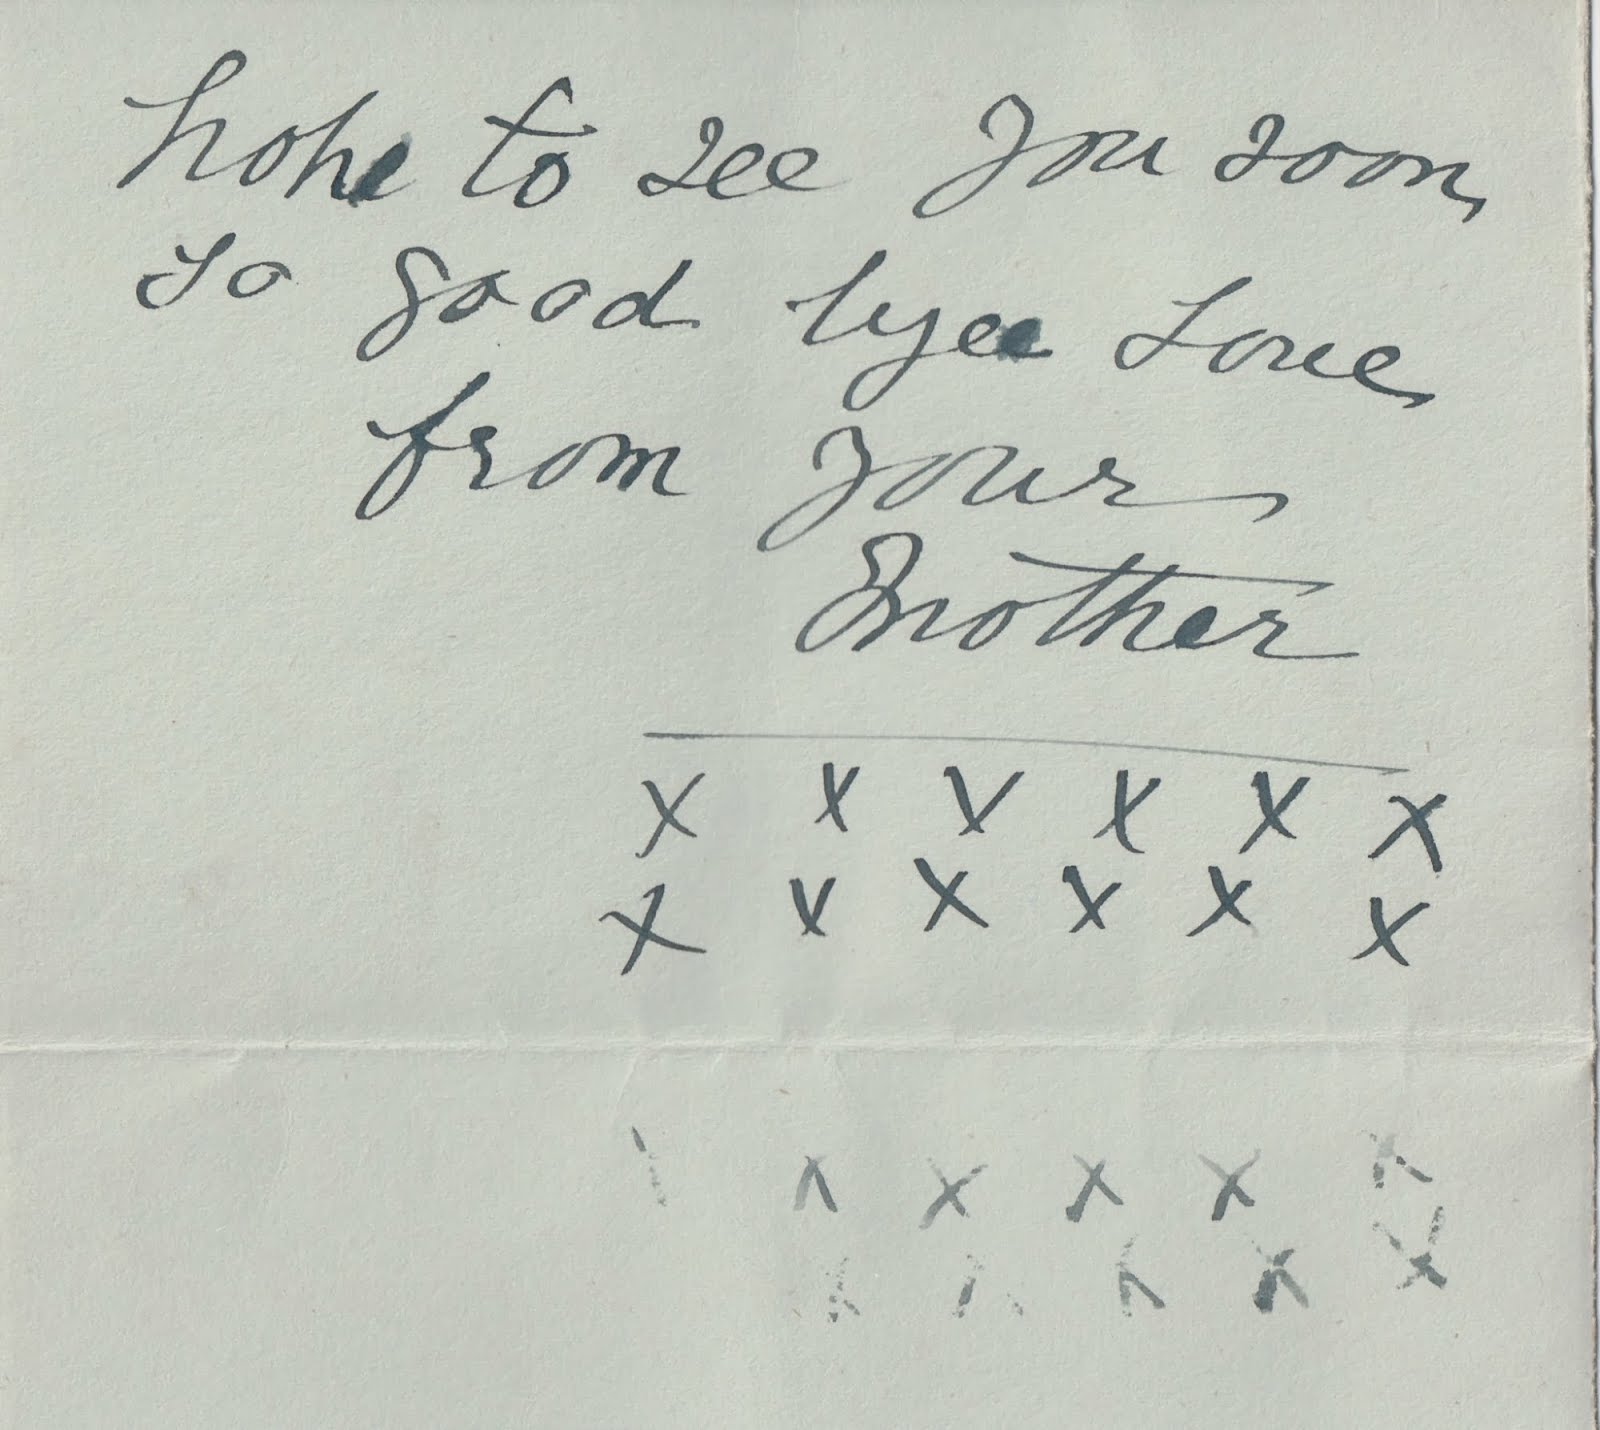 hope to see you soon
so good bye Love
from your
Mother
X X X X X X
X X X X X X